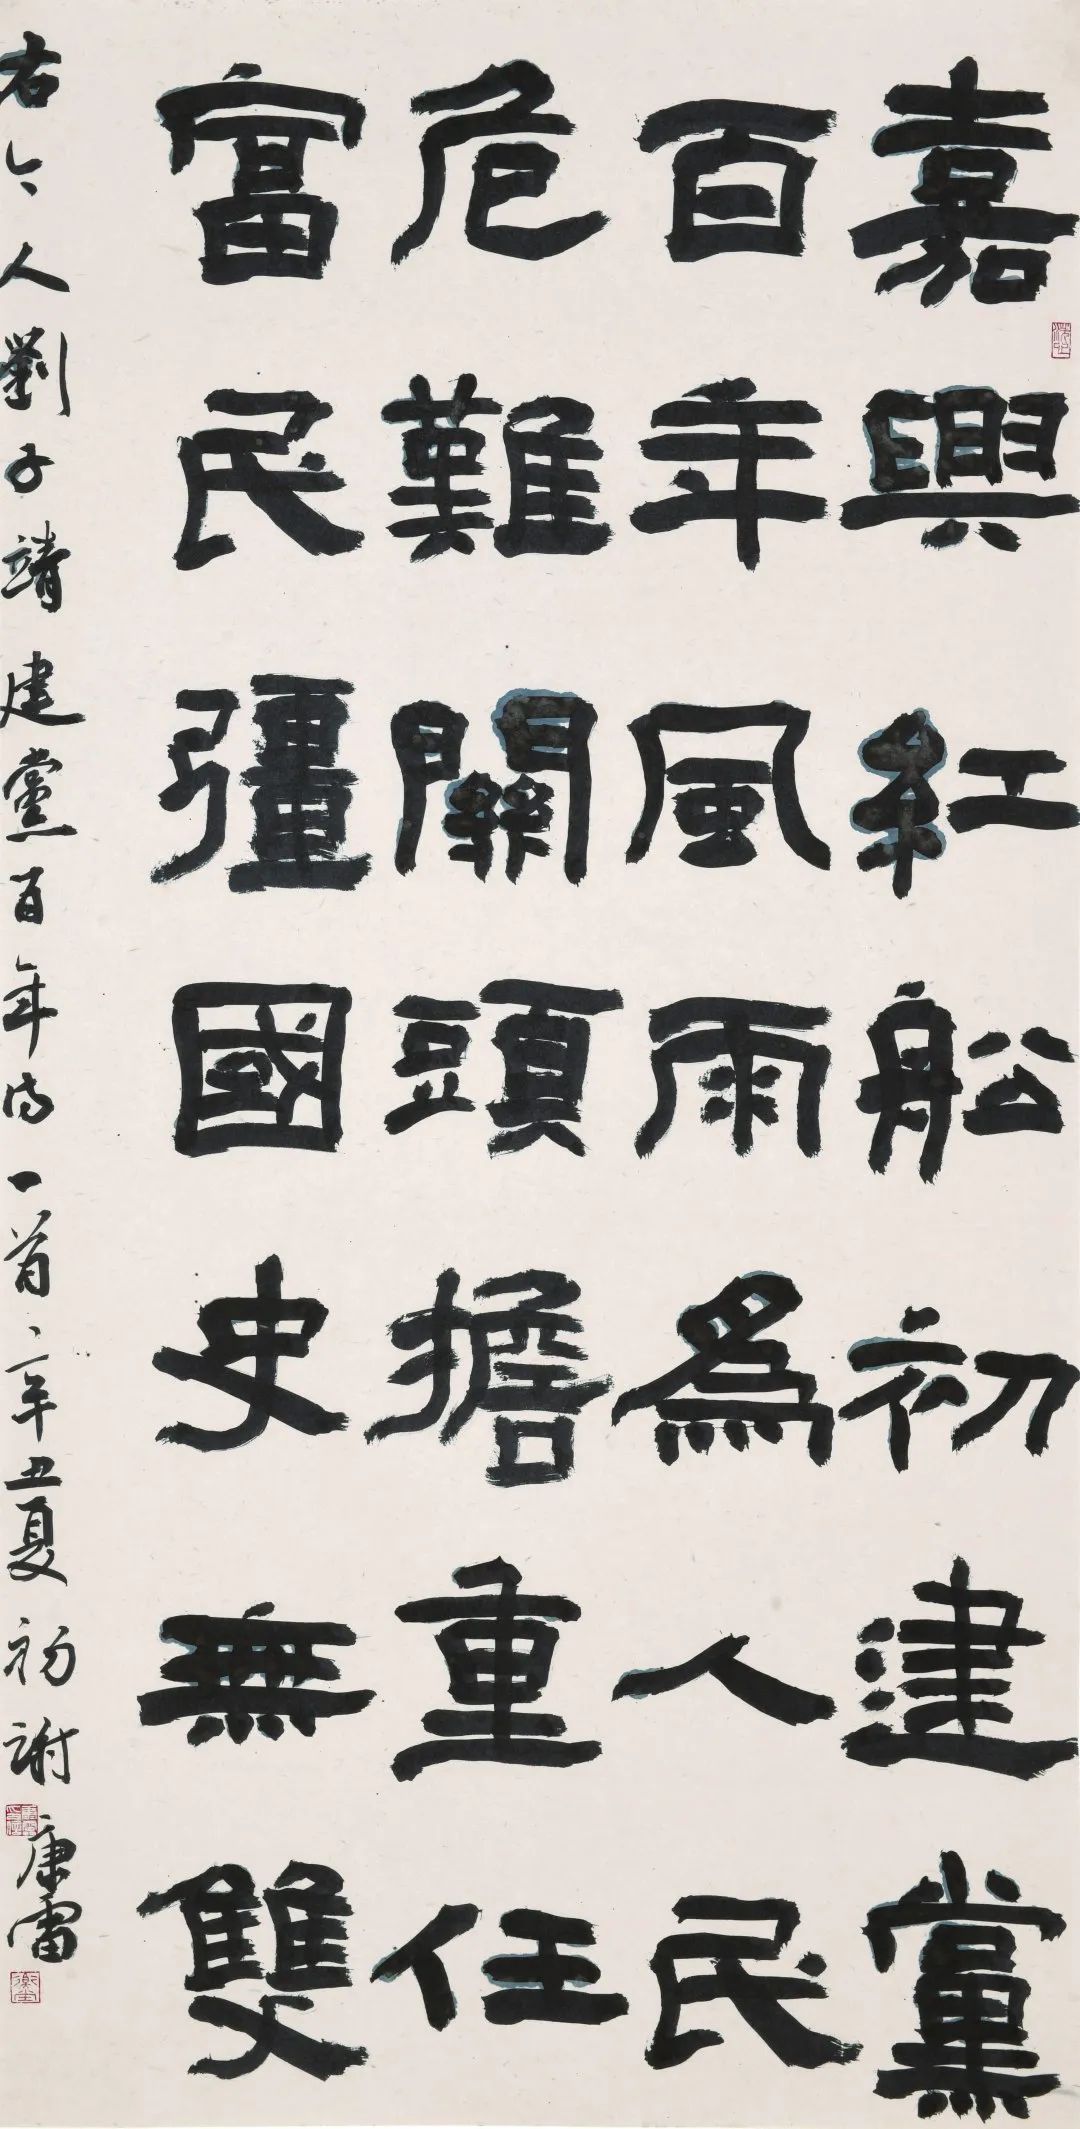 嘉興紅舩初建黨
百年風雨爲人民
危難關頭擔重任
富民彊國史無雙
右今人劉子靖建黨百年詩一首辛丑夏初謝康雷